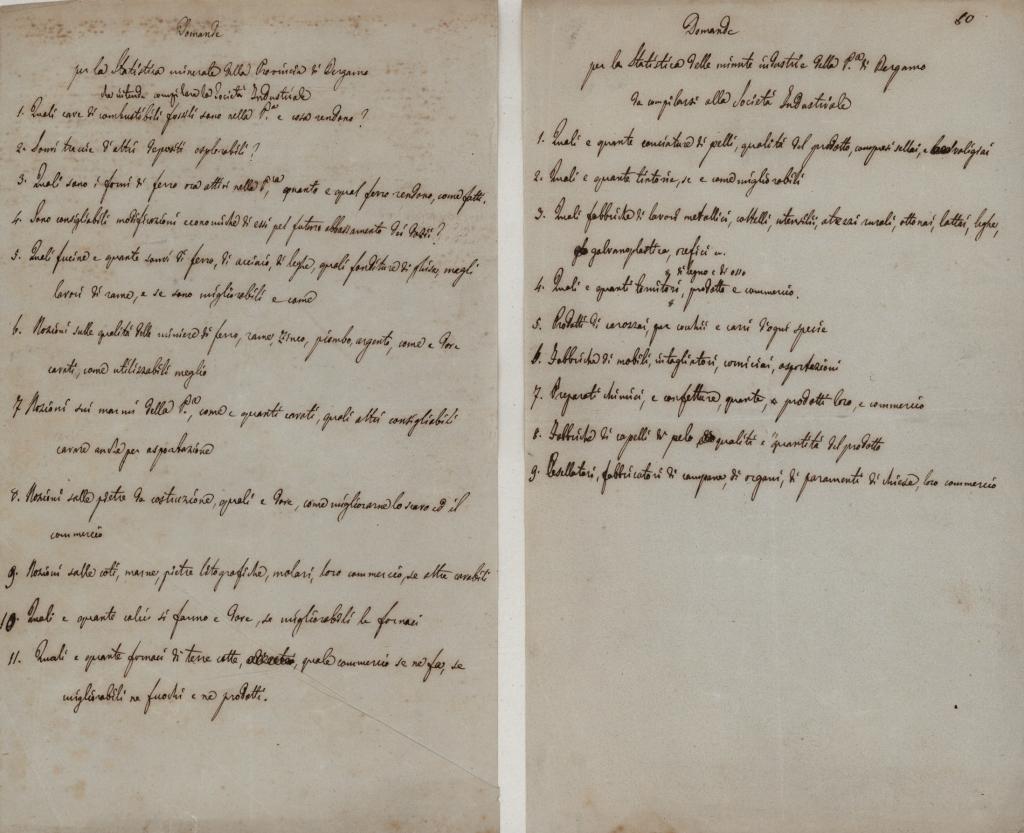 Domande
per la Statistica minerale della Provincia di Bergamo
che intende compilare la Società Industriale
1. Quali cave di combustibili fossili sono nella P.a e cosa rendono?
2. Sonvi traccie d'altri depositi esplorabili?
3. Quali sono i forni di ferro ora attivi nella P.cia quanto e qual ferro rendono, come fatto.
4. Sono consigliabili modificazioni economiche di essi pel futuro abbassamento dei dazii?
5. Quali fucine e quante sonvi di ferro, di acciaio, di leghe, quali fonditure di ghise, magli
lavori di rame, e se sono migliorabili e come
6. Nozioni sulle qualità delle miniere di ferro, rame, zinco, piombo, argento, come e dove
cavati, come utilizzabili meglio
7 Nozioni sui marmi della P.cia, come e quanti cavati, quali altri consigliabili
cavare anche per asportazione
8. Nozioni sulle pietre da costruzione, quali e dove, come migliorarne lo scavo ed il
commercio
9. Nozioni sulle coti, marne, pietre litografiche, molari, loro commercio, se altre cavabili
10. Quali e quante calci si fanno e dove, se migliorabili le fornaci
11. Quali e quante fornaci di terre cotte, quale commercio se ne fa, se
migliorabili ne fuochi e ne prodotti.
60
Domande
per la Statistica delle minute industrie della P.cia di Bergamo
da compilarsi alla Società Industriale
1. Quali e quante conciature di pelli, qualità del prodotto, compresi sellai, e valigiai
2. Quali e quante tintorie, se e come migliorabili
3. Quali fabbriche di lavori metallici, coltelli, utensili, attrezzi rurali, ottonai, lattai, leghe,
galvanoplastica, orefici
di legno e di osso
4. Quali e quanti tornitori, prodotto e commercio.
5. Prodotti di carozzai, per cocchii e carri d'ogni specie
6. Fabbriche di mobili, intagliatori, corniciai, asportazioni
7. Preparati chimici, e confetture, quante, e prodotti loro, e commercio
8. Fabbriche di capelli di pelo qualità e quantità del prodotto
9. Cesellatori, fabbricatori di campane, di organi, di paramenti di chiesa, loro commercio